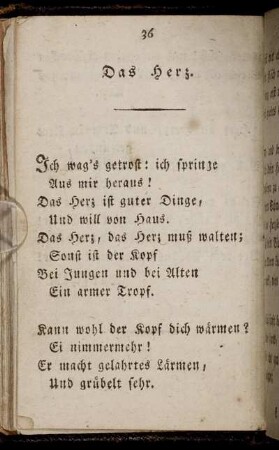 36
Das Herz.
Ich wag's getrost: ich springe
Aus mir heraus!
Das Herz ist guter Dinge,
Und will von Haus.
Das Herz, das Herz muß walten;
Sonst ist der Kopf
Bei Jungen und bei Alten
Ein armer Tropf.
Kann wohl der Kopf dich wärmen?
Ei nimmermehr!
Er macht gelahrtes Lärmen,
Und grübelt sehr.